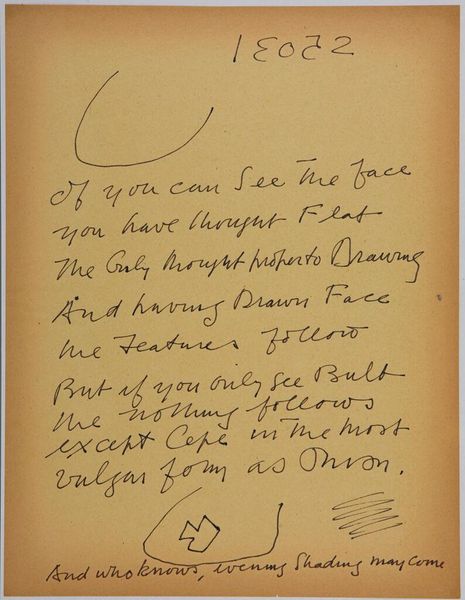 If you can See the face
you have thought Flat
the Only thought proper to Drawing
And having Drawn Face
the Features follow
But if you only see
the nothing follows
except Cepe in the most
vulgar form as Onion.
And who knows, evening Shading may come